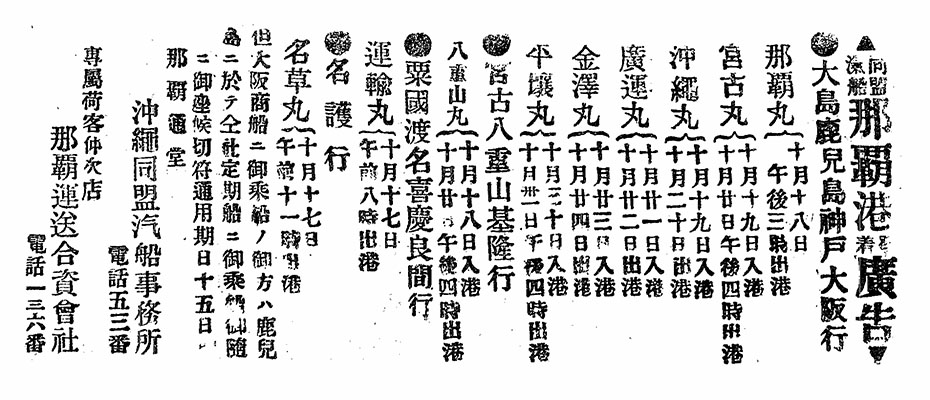 ▲同盟滊船那覇港發着廣告▼
●大島鹿兒島神戸大阪行
那覇丸 十月十八日 午後三時出港
宮古丸 十月十九日入港 十月廿日午後四時出港
沖繩丸 十月十九日入港 十月二十日出港
廣運丸 十月廿一日入港 十月廿二日出港
金澤丸 十月廿三日入港 十月廿四日出港
平壤丸 十月三十日入港 十月卅一日午後四時出港
●宮古八重山基隆行
八重山丸 十月十八日入港 十月廿日午後四時出港
●粟國渡名喜慶良間行
運輸丸 十月十七日 午前八時出港
●名護行
名草丸 十月十七日 午前十一時出港
但大阪商船ニ御乘船ノ御方ハ鹿兒
島ニ於テ仝社定期船ニ御乘船御隨
ニ御座候切符通用期日十五日
那覇通堂
沖繩同盟汽船事務所
電話五三番
專屬荷客仲次店
那覇運送合資會社
電話一三六番